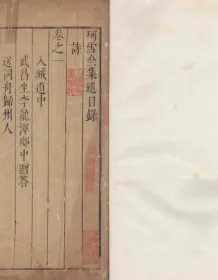 珂雪齋集選目錄
詩
卷之一
入城道中
武昌坐李龍潭邸中贈答
送同舟歸州人